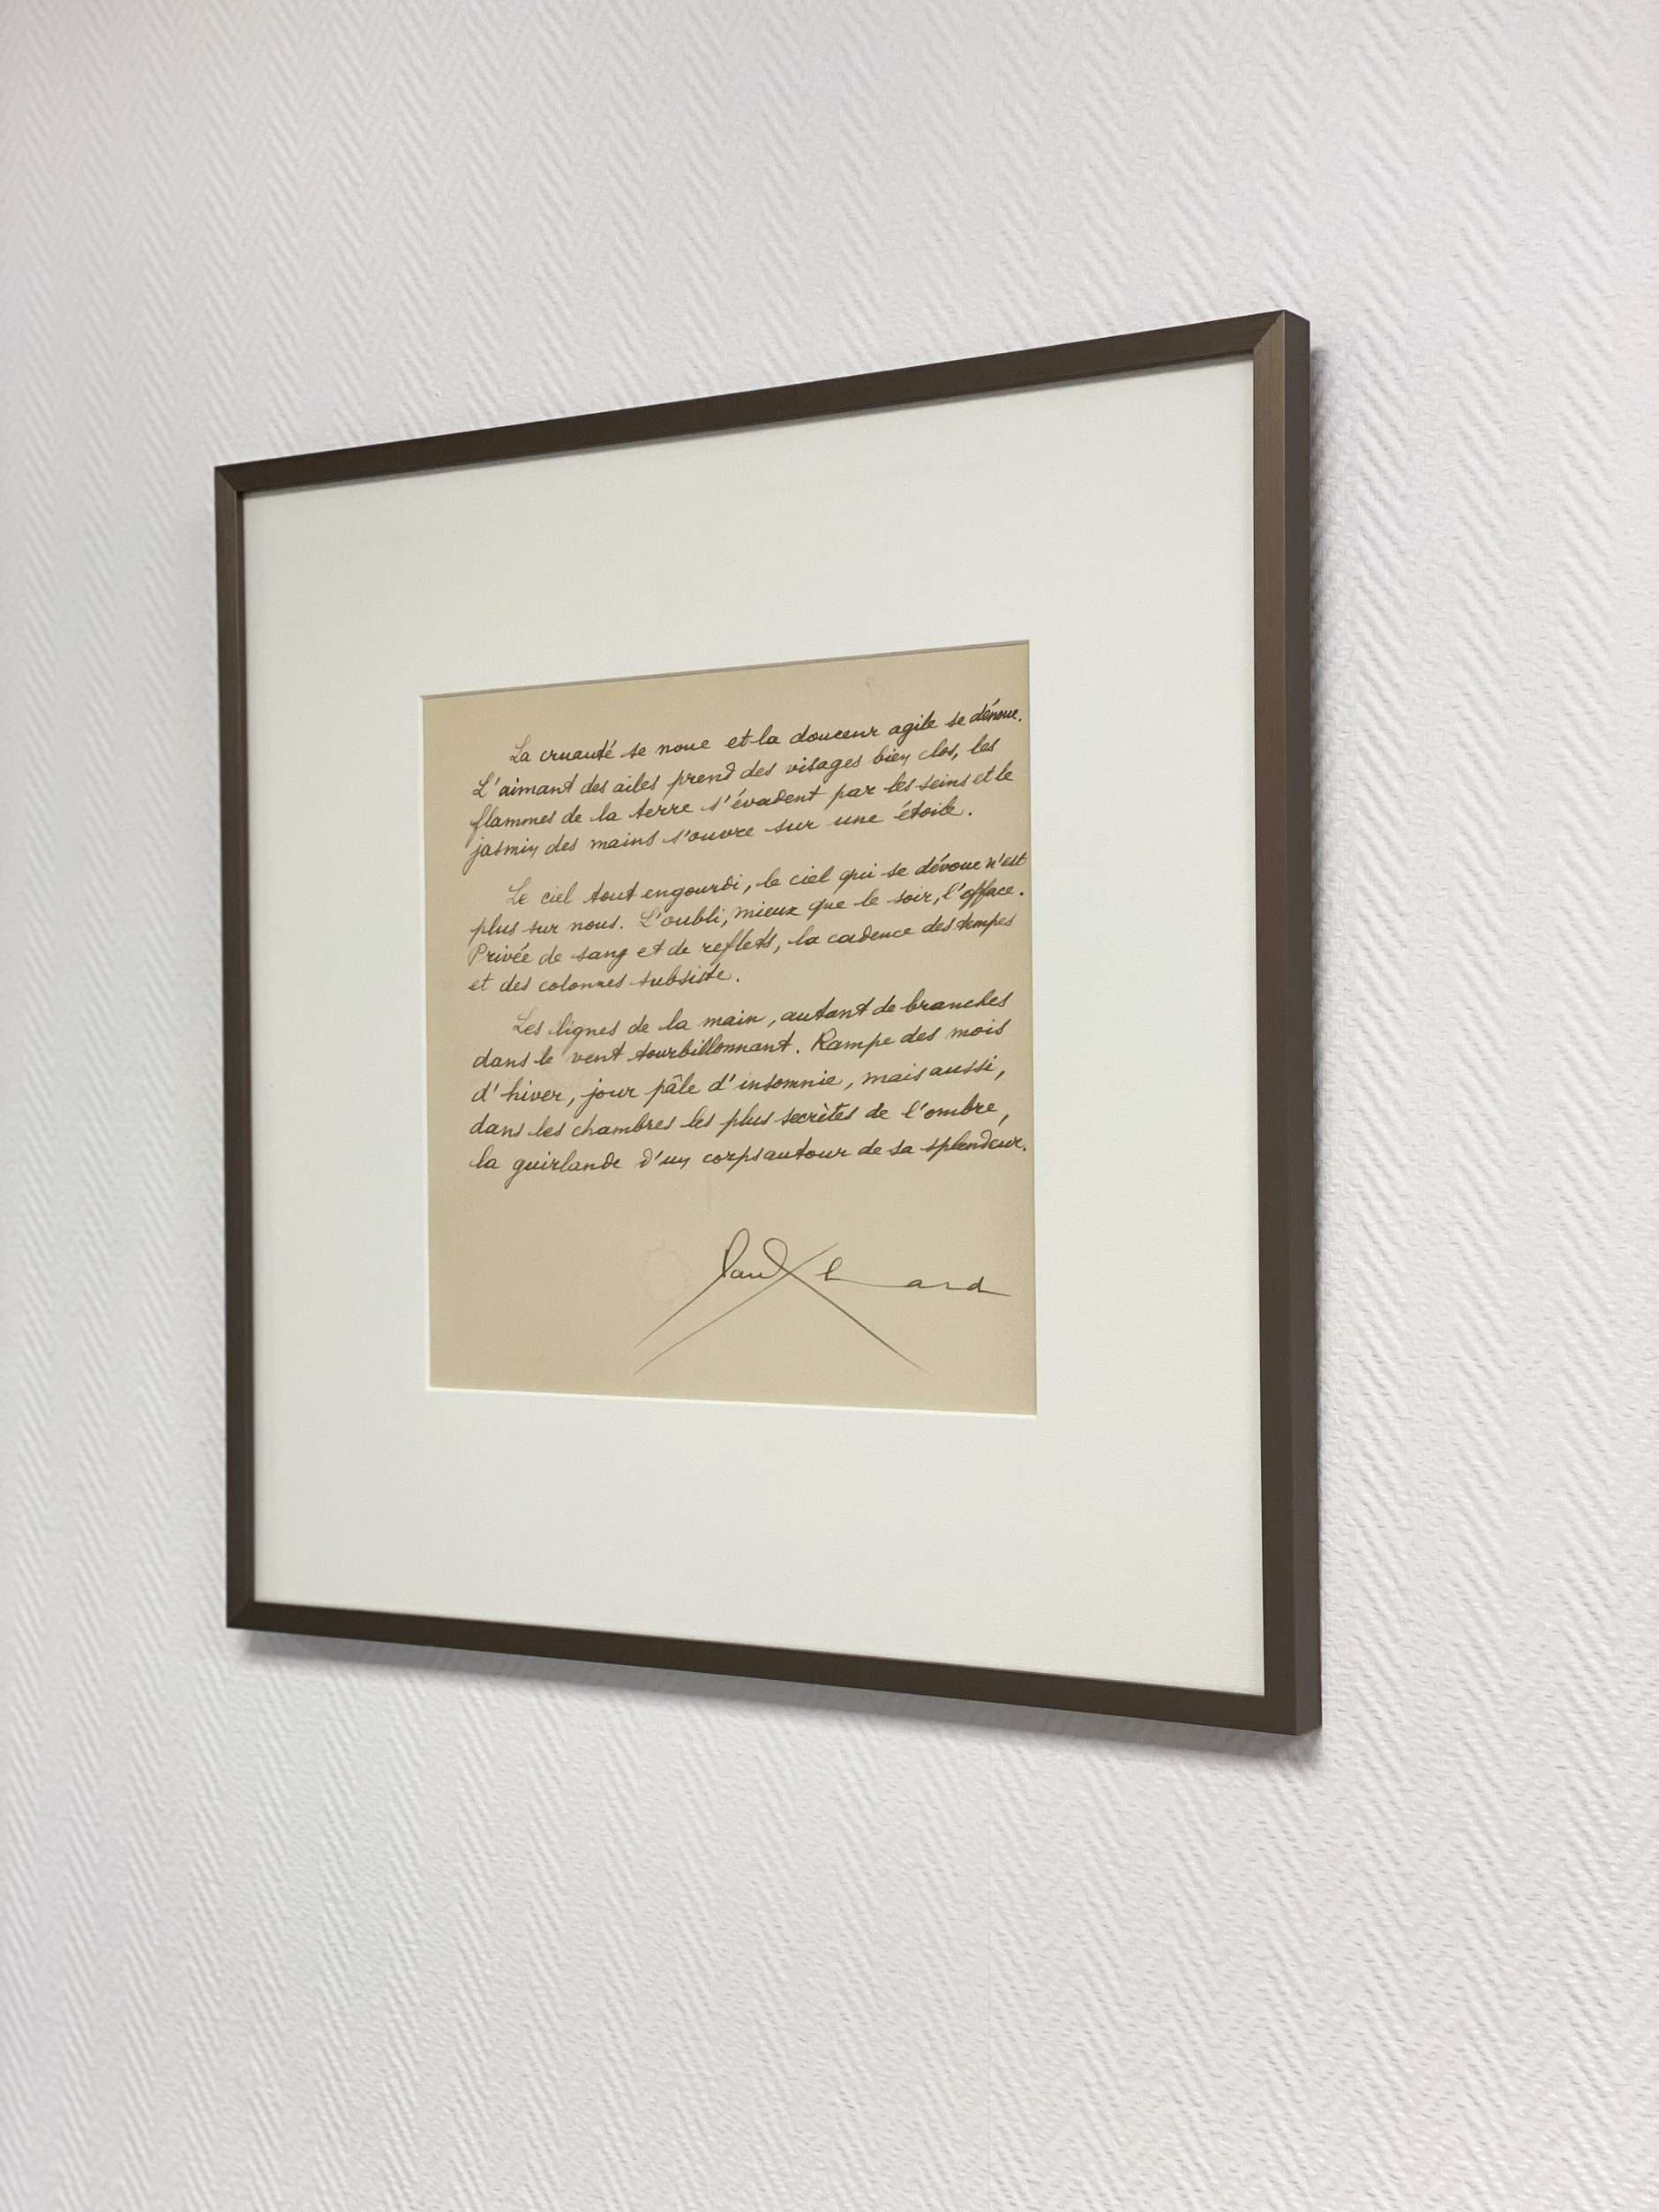 La cruauté se noue et la douceur agile se dénoue.
L'aimant des ailes prend des visages bien clos, les
flammes de la terre s'évadent par les seins et le
jasmin des mains s'ouvre sur une étoile.
Le ciel tout engourdi, le ciel qui se dévoue n'est
plus sur nous. L'oubli, mieux que le soir, l'efface.
Privée de sang et de reflets, la cadence des tempes
et des colonnes subsiste.
Les lignes de la main, autant de branches
dans le vent tourbillonnant. Rampe des mois
d'hiver, jour pâle d'insomnie, mais aussi,
dans les chambres les plus secrètes de l'ombre,
la guirlande d'un corps autour de sa splendeur.
Paul Eluard